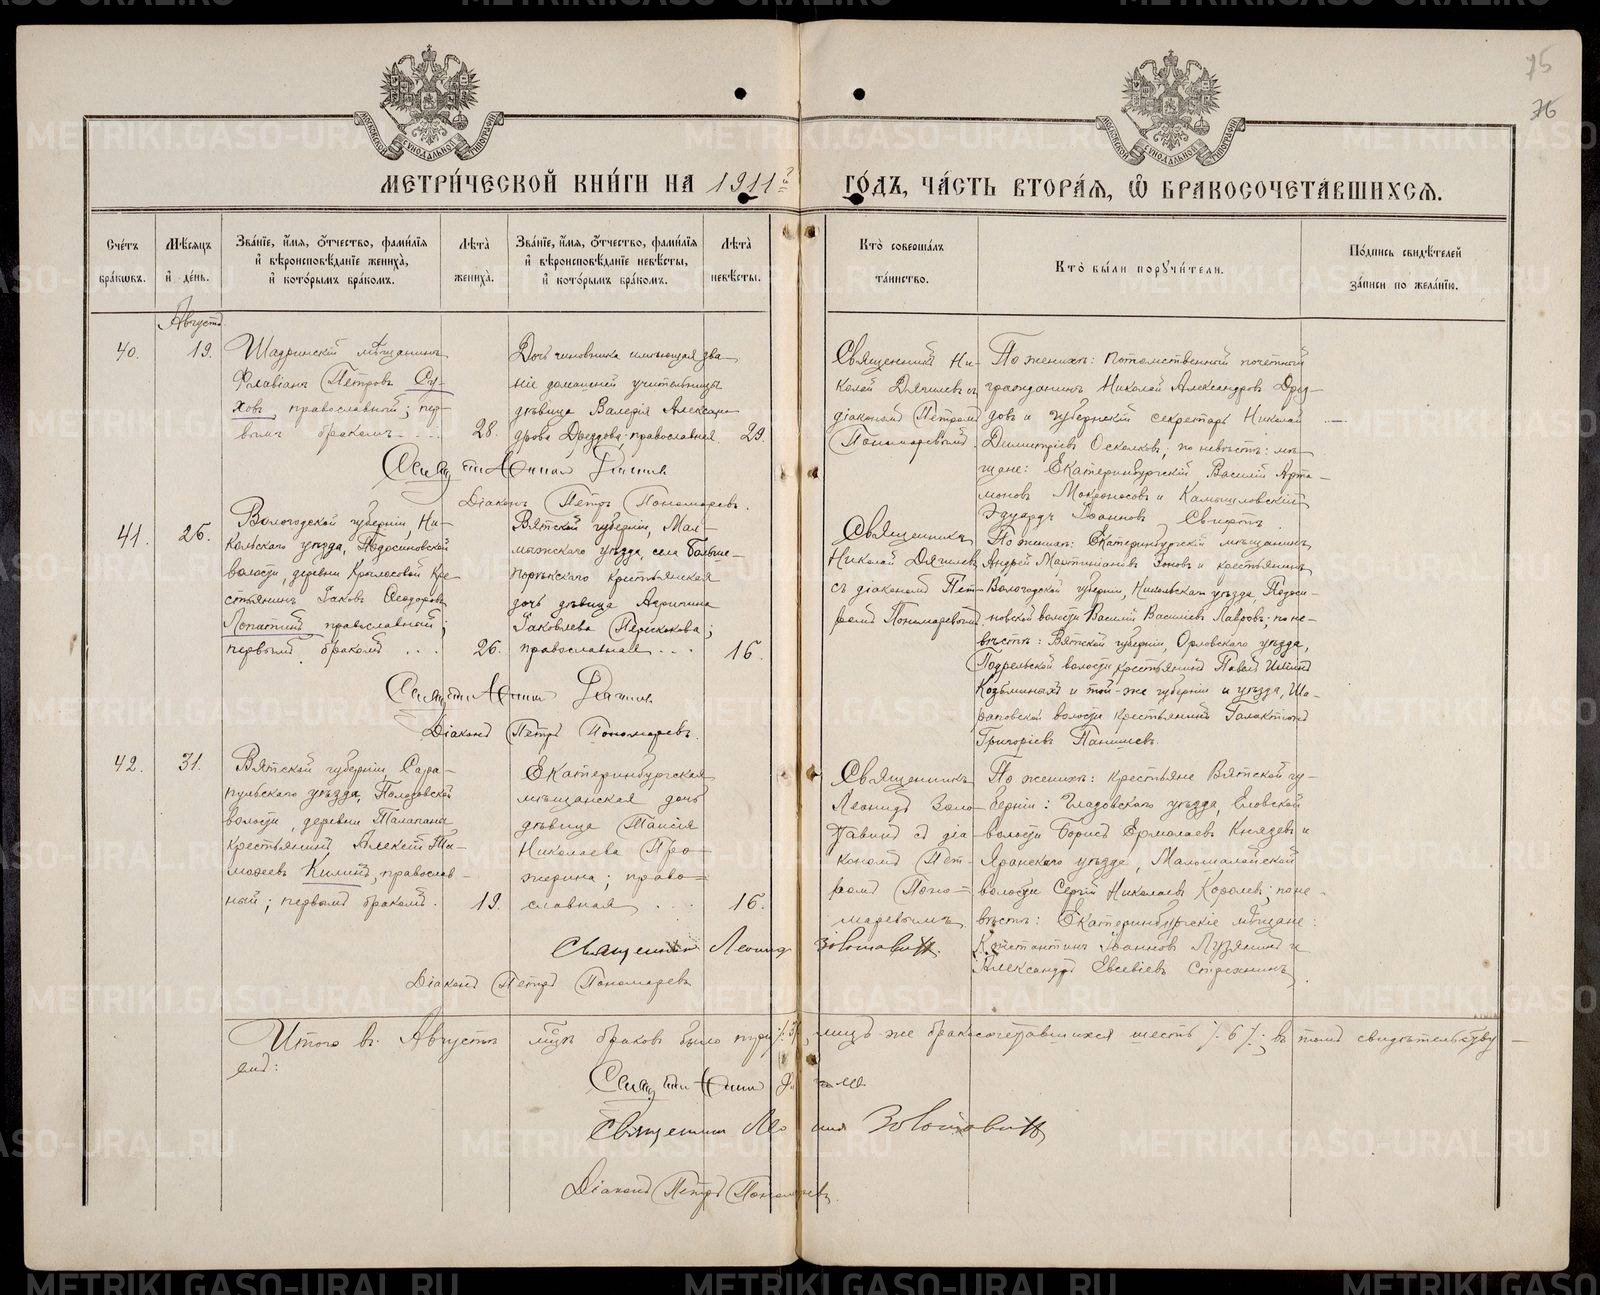 75
76
МЕТРИ́ЧЕСКОЙ КНИ́ГИ НА 1911й ГО́ДЪ, ЧА́СТЬ ВТОРА́Я, Ѿ БРАКОСОЧЕТА́ВШИХСЯ.
Сче́тъ бра́кωвъ.
Мѣ́сяцъ и҆ де́нь.
Зва́нїе, и҆́мя, о҆́тчество, фами́лїя и҆ вѣроисповѣ́данїе жениха̀, и҆ кото́рымъ бра́комъ.
Лѣ́та жениха̀.
Зва́нїе, и҆́мя, о҆́тчество, фами́лїя и҆ вѣроисповѣ́данїе невѣ́сты, и҆ кото́рымъ бра́комъ.
Лѣ́та невѣ́сты.
Кто̀ соверша́лъ та́инство.
Кто̀ бы́ли поручи́тели.
По́дпись свидѣ́телей за́писи по жела́нїю.
Августъ
40.
19.
Шадринскій мѣщанинъ
Флавіанъ Петровъ Су-
ховъ, православный; пер-
вымъ бракомъ
28.
Дочь чиновника имѣющая зва-
ніе домашней учительницы
дѣвица Валерія Александ-
рова Дроздова, православная.
29.
Священникъ Ни-
колай Дягилевъ съ
діакономъ Петромъ
Пономаревымъ.
По женихѣ: потомственный почетный
гражданинъ Николай Александровъ Дроз-
довъ и губернскій секретарь Николай
Димитріевъ Осколковъ, по невѣстѣ: мѣ-
щане: Екатеринбургскій Василій Арта-
моновъ Мокроносовъ и Камышловскій
Эдуардъ Іоанновъ
Діаконъ Петръ Пономаревъ.
41.
26.
Вологодской губерніи, Ни-
кольскаго уѣзда, Подосиновской
волости, деревни Круглосовой кре-
стьянинъ Іаковъ Ѳеодоровъ
Лопатинъ православный;
первымъ бракомъ
26.
Вятской губерніи, Мал-
мыжскаго уѣзда, села Больше-
порѣкскаго крестьянская
дочь дѣвица Агрипина
Іаковлева Перескокова;
православная
16.
Священникъ
Николай Дягилевъ
съ діакономъ Пет-
ромъ Пономаревымъ
По женихѣ: Екатеринбургскій мѣщанинъ
Андрей Мартиніановъ Зоновъ и крестьянинъ
Вологодской губерніи, Никольскаго уѣзда, Подоси-
новской волости Василій Василіевъ Лавровъ; по не-
вѣстѣ: Вятской губерніи, Орловскаго уѣзда,
Подрельской волости крестьянинъ Павелъ Иліинъ
Козьминыхъ и той-же губерніи и уѣзда, Ша-
раповской волости крестьянинъ Галактіонъ
Григоріевъ Паншиевъ.
Діаконъ Петръ Пономаревъ.
42.
31.
Вятской губерніи, Сара-
пульскаго уѣзда, Полозовской
волости, деревни Талапана
крестьянинъ Алексій Ти-
моѳеевъ Килинъ, православ-
ный; первымъ бракомъ.
19.
Екатеринбургская
мѣщанская дочь
дѣвица Таисія
Николаева Про-
жерина; право-
славная
16.
Священникъ
Леонидъ Золо-
тавинъ съ діа-
кономъ Пет-
ромъ Поно-
маревымъ
По женихѣ: крестьяне Вятской гу-
берніи: Глазовскаго уѣзда, Еловской
волости Борисъ Ермолаевъ Князевъ и
Яранскаго уѣзда, Малошалайской
волости Сергій Николаевъ Королевъ; по не-
вѣстѣ: Екатеринбургскіе мѣщане:
Константинъ Іоанновъ Лузянинъ и
Александръ Евсевіевъ Стрежнинъ.
Священникъ Леонидъ Золотавинъ.
Діаконъ Петръ Пономаревъ
Итого въ Августѣ м-цѣ браковъ было три /.3/., лицъ-же бракосочетавшихся шесть /.6/.; въ томъ свидѣтельству-
емъ:
Священникъ Леонидъ Золотавинъ
Діаконъ Петръ Пономаревъ.
METRIKI.GASO-URAL.RU